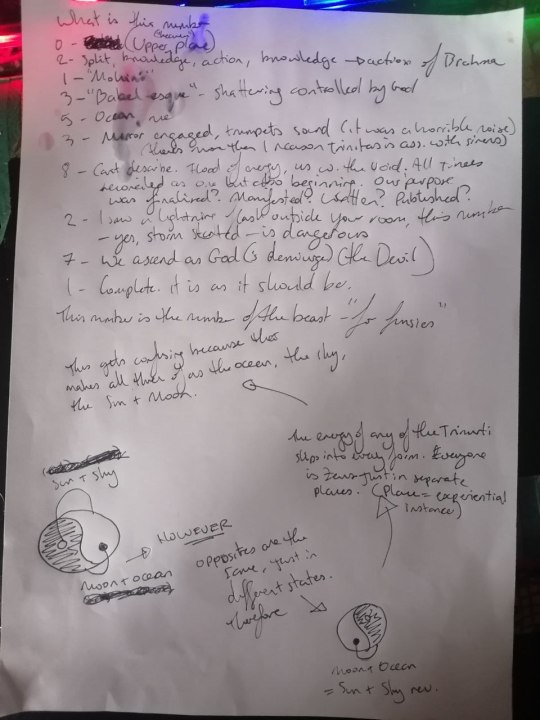 What is this number
(heavenly)
0 - (Upper plane)
2 - Split, knowledge, action, knowledge → action of Brahma
1 - "Mohini"
3 - "Babel esque" - shattering controlled by God
5 - Ocean, me
3 - Mirror engaged, trumpets sound (it was a horrible noise)
(theres more than 1 reason Trinitas is ass. with sirens)
8 - Cant describe. Flood of energy, us w. the void. All Times
reconciled as One but also beginning. Our purpose
was finalized? Manifested? Written? Published?
2 - I saw a lightning flash outside your room, this number
- yes, storm started - is dangerous
7 - We ascend as God (is demiurge) (the Devil)
1 - Complete. it is as it should be.
This number is the number of the beast - "for funsies"
This gets confusing because this
makes all three of us the ocean, the sky,
the Sun + Moon.
The energy of any of the Trimurti
slips into every form. Everyone
is Zeus just in separate
planes. (Plane = experiential
instance)
Sun + Sky
Moon + ocean
→ HOWEVER
opposites are the
same, just in
different states.
Therefore
Moon + Ocean
= Sun + Sky rev.